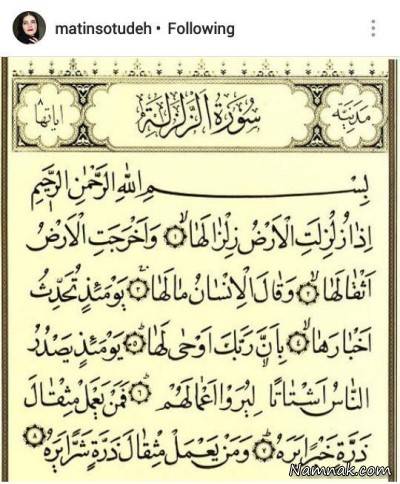 matinsotudeh • Following
مدنیة
سُورَةُ الزَّلزَلَة
ایاتها ۸
بِسْمِ اللهِ الرَّحْمٰنِ الرَّحِيمِ
اِذَا زُلْزِلَتِ الْاَرْضُ زِلْزَالَهَا ۱ وَاَخْرَجَتِ الْاَرْضُ
اَثْقَالَهَا ۲ وَقَالَ الْاِنْسَانُ مَالَهَا ۳ يَوْمَئِذٍ تُحَدِّثُ
اَخْبَارَهَا ۴ بِاَنَّ رَبَّكَ اَوْحٰى لَهَا ۵ يَوْمَئِذٍ يَصْدُرُ
النَّاسُ اَشْتَاتًا لِيُرَوْا اَعْمَالَهُمْ ۶ فَمَنْ يَعْمَلْ مِثْقَالَ
ذَرَّةٍ خَيْرًا يَرَهُ ۷ وَمَنْ يَعْمَلْ مِثْقَالَ ذَرَّةٍ شَرًّا يَرَهُ ۸
Namnak.com